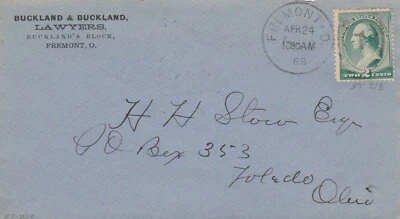 BUCKLAND & BUCKLAND,
LAWYERS,
BUCKLAND'S BLOCK,
FREMONT, O.
FREMONT O.
APR 24
1030AM
TWO 2 CENTS
H H Stow Esq
PO Box 353
Toledo
Ohio